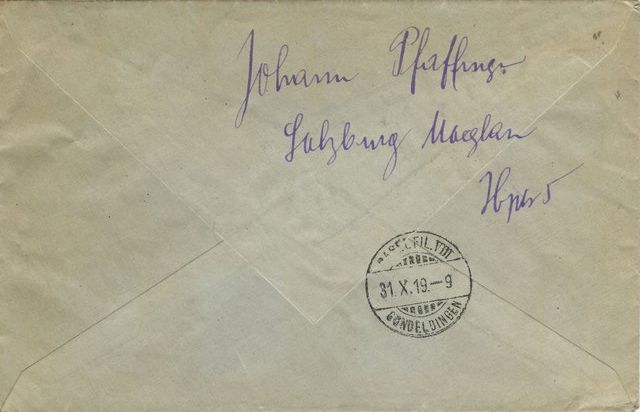 Johann Pfaffinger
Salzburg Maxglan
BASEL FIL. VIII
31.X.19.–9
GUNDELDINGEN